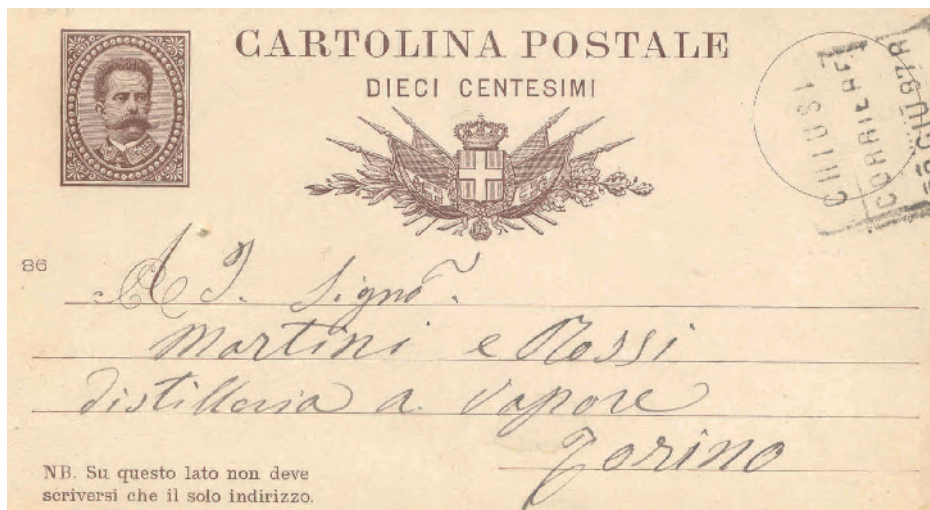 CARTOLINA POSTALE
DIECI CENTESIMI
CHIUSI
86
A J. Signo͂.
Martini e Rossi
distilleria a vapore
Torino
NB. Su questo lato non deve
scriversi che il solo indirizzo.